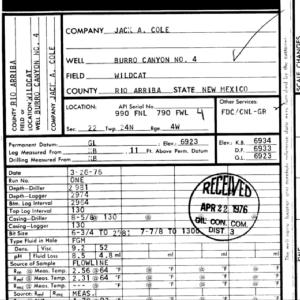 COMPANY JACK A. COLE
WELL BURRO CANYON NO. 4
FIELD WILDCAT
COUNTY RIO ARRIBA STATE NEW MEXICO
COUNTY RIO ARRIBA
FIELD or LOCATION WILDCAT
WELL BURRO CANYON NO. 4
COMPANY JACK A. COLE
LOCATION: API Serial No. Other Services:
990 FNL 790 FWL 4 FDC/CNL-GR
Sec. 22 Twp. 24N Rge. 4W
Permanent Datum: GL Elev.: 6923 Elev.: K.B. 6934
Log Measured From KB 11 Ft. Above Perm. Datum D.F. 6933
Drilling Measured From KB G.L. 6923
Date 3-26-76
Run No. ONE
Depth-Driller 2981
Depth-Logger 2974
Btm. Log Interval 2964
Top Log Interval 130
Casing-Driller 8-5/8 @ 130 @ @
Casing-Logger 130
Bit Size 6-3/4 TO 2981 7-7/8 TO 1300
Type Fluid in Hole FGM
Dens. Visc. 9.2 52
pH Fluid Loss 8.5 4.8 ml ml ml
Source of Sample FLOWLINE
Rm @ Meas. Temp. 2.56 @ 64 °F @ °F @ °F
Rmf @ Meas. Temp. 2.31 @ 64 °F @ °F @ °F
Rmc @ Meas. Temp. @ °F @ °F @ °F
Source: Rmf Rmc MEAS.
RECEIVED
APR 22 1976
OIL CON. COM.
DIST. 3
SCALE CHANGES